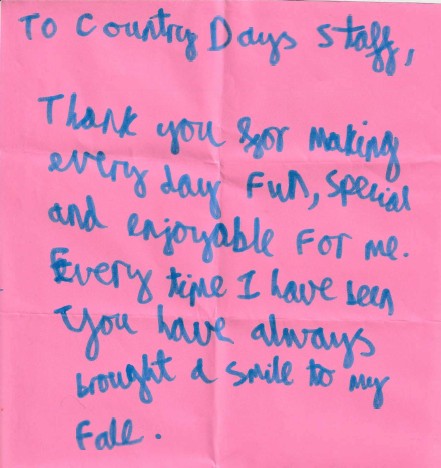 To Country Days Staff,
Thank you for making
every day fun, special
and enjoyable for me.
Every time I have been
You have always
brought a smile to my
face.